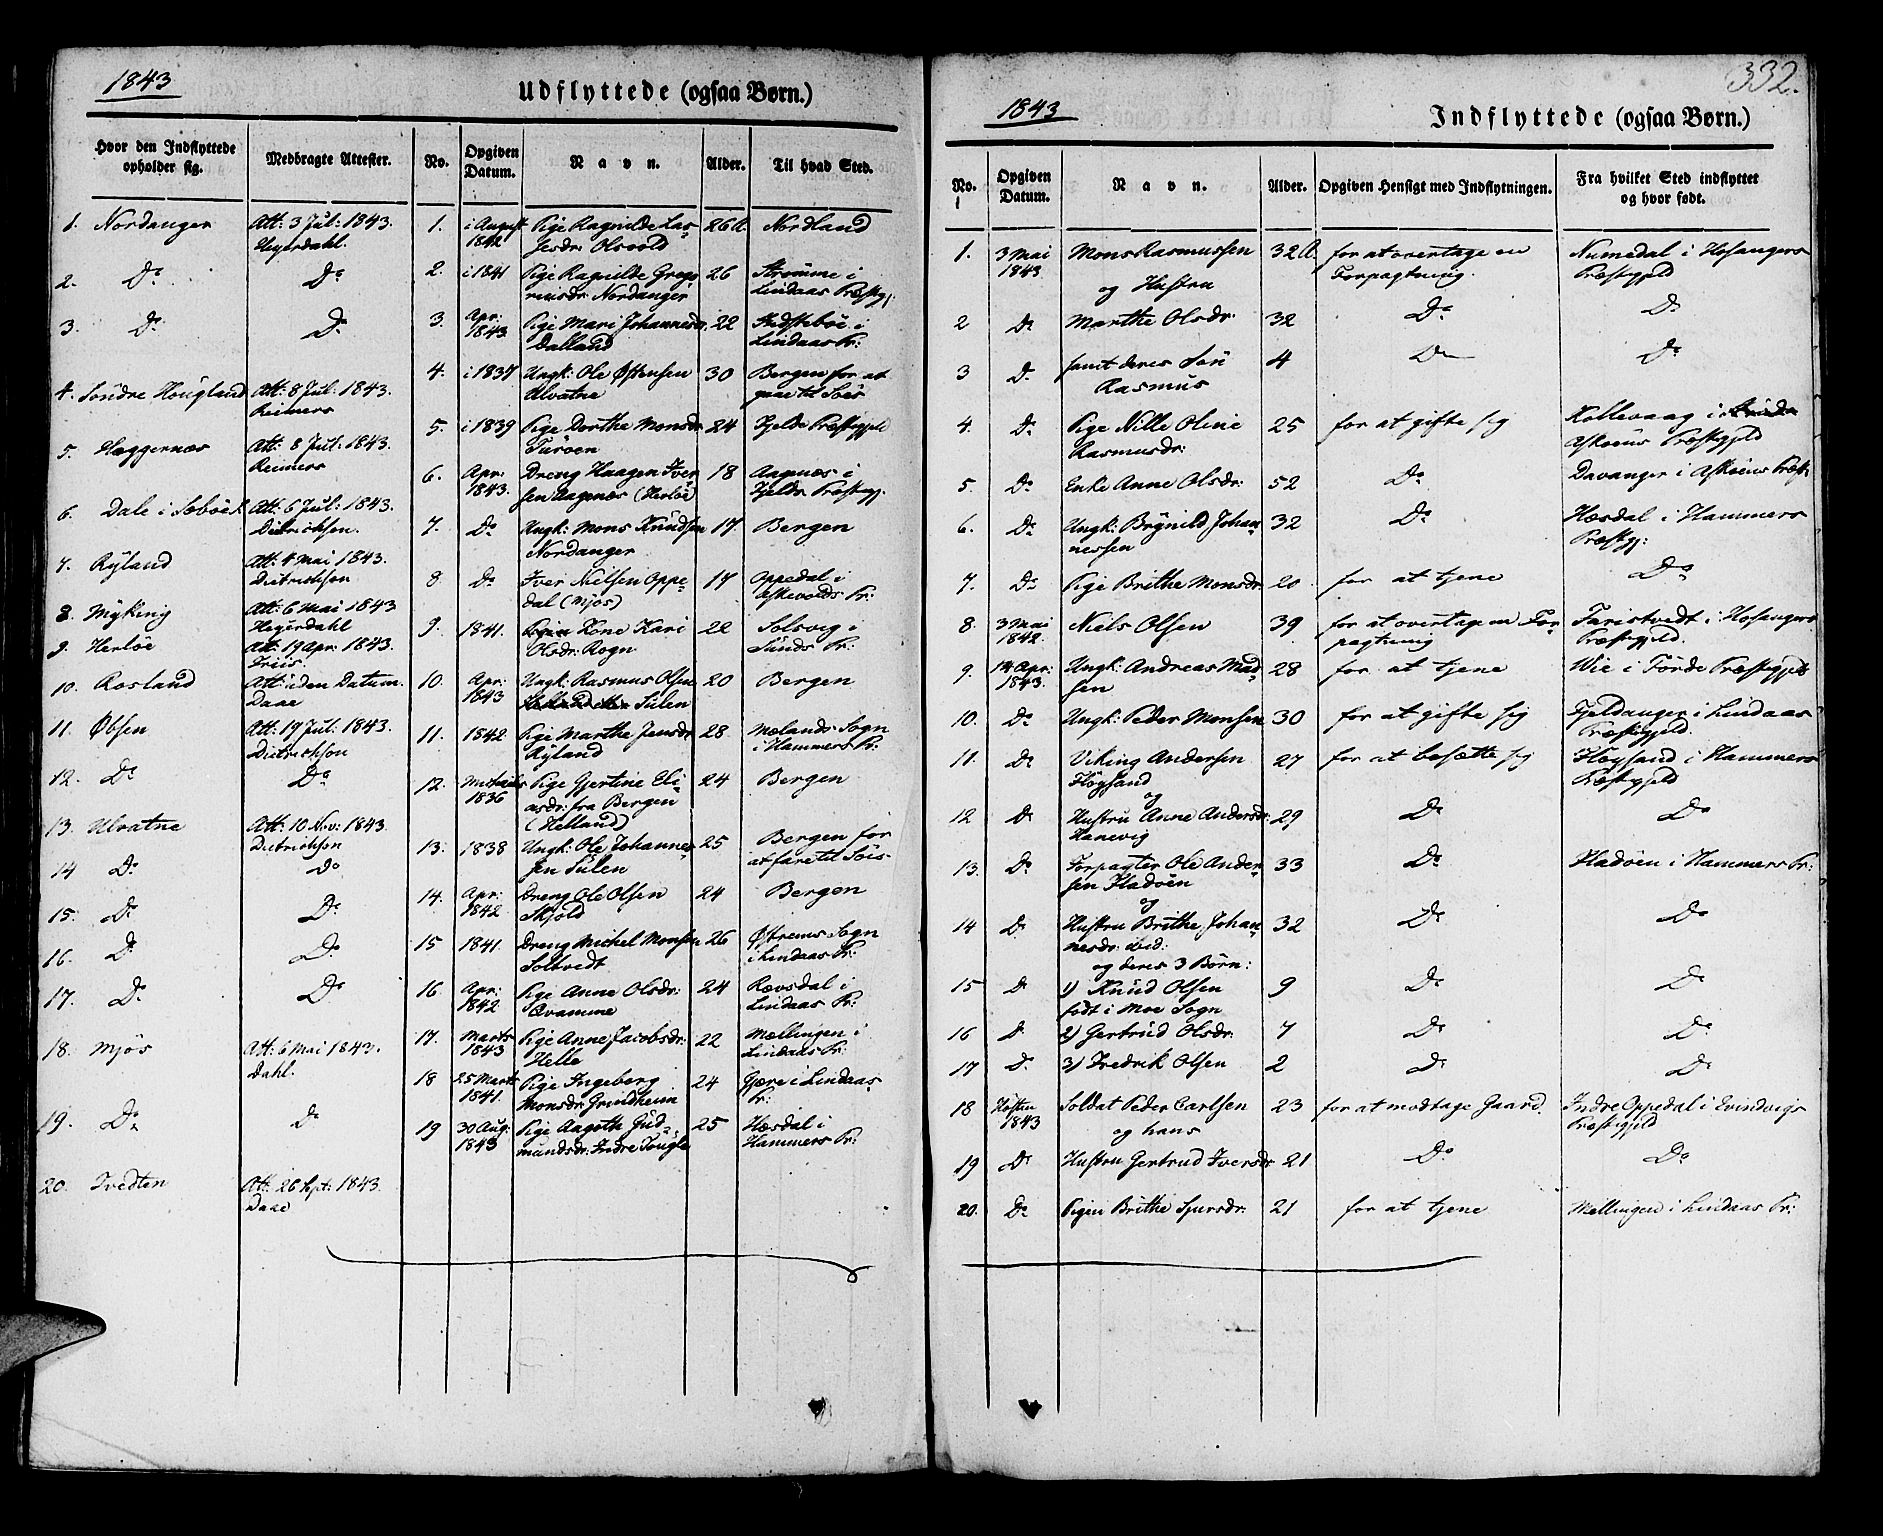 1843
Udflyttede (ogsaa Børn.)
Hvor den Indflyttede opholder sig.
Medbragte Attester.
No.
Opgiven Datum.
Navn.
Alder.
Til hvad Sted.
1. Nordanger Att: 3 Jul: 1843. Heyerdahl.
2. Do Do
3. Do Do
4. Söndre Hougland Att: 8 Jul: 1843. Reimers
5. Hæggernæs Att: 8 Jul: 1843. Reimers
6. Dale i Sæböe Att: 6 Jul: 1843. Dietrichson.
7. Ryland Att: 4 Mai 1843. Dietrichson
8. Myking Att: 6 Mai 1843 Heyerdahl
9. Herlöe Att: 19 Apr: 1843. Friis.
10. Rosland Att: uden Datum. Daae
11. Øbsen Att: 19 Jul: 1843. Dietrichson
12. Do Do
13. Ulvatne Att: 10 Nov: 1843. Dietrichson
14 Do Do
15. Do Do
16. Do Do
17. Do Do
18. Mjös Att: 6 Mai 1843. Dahl.
19. Do Do
20. Tvedten Att: 26 Sept: 1843. Daae
1. i August 1842 Pige Ragnilde Lassesdr: Olsvold 26 A. Nordland
2. i 1841 Pige Ragnilde Gregoriusdr: Nordanger 26 Strömme i Lindaas Præstegj:
3. Apr: 1843. Pige Mari Johannesdr: Dalland 22 i Lindaas Pr:
4. i 1837 Ungk: Ole Østensen Ulvatne 30 Bergen for at gaae til Söes
5. i 1839 Pige Dorthe Monsdr: Turöen 24 Fjelds Præstegjeld
6. Apr: 1843. Dreng Haagen Iversen Aagenæs (Herlöe) 18 Aagenæs i Fjelds Præstegj.
7. Do Ungk: Mons Knudsen Nordanger 17 Bergen
8 Do Iver Nielsen Oppedal (Mjös) 17 Oppedal i Askevolds Pr:
9. 1841. Kone Kari Olsdr: Rogn 22 Solsvig i Sunds Pr:
10. Apr: 1843 Ungk: Rasmus Olsen Sulen 20 Bergen
11. 1842 Pige Marthe Jensdr: Ryland 28. Mælands Sogn i Hammers Pr:
12. 1836 Pige Gjertine Eliasdr: fra Bergen (Helland) 24 Bergen
13. 1838 Ungk: Ole Johannessen Sulen 25 Bergen for at fare til Söis
14. Apr: 1842 Dreng Ole Olsen Skjold 24 Bergen
15 1841. Dreng Michel Monsen Soltvedt 26 Østrems Sogn i Lindaas Pr:
16 Apr: 1842 Pige Anne Olsdr: Qvamme 24 Rævsdal i Lindaas Pr:
17. Marts 1843 Pige Anne Jacobsdr: Helle 22 Mellingen i Lindaas Pr:
18 25 Marts 1841. Pige Ingeborg Monsdr: Grindheim 24 Gjære i Lindaas Pr:
19 30 Aug: 1843 Pige Aagothe Gudmundsdr: Indre 25 Hæsdal i Hammers Pr:
332.
1843
Indflyttede (ogsaa Børn.)
No.
Opgiven Datum.
Navn.
Alder.
Opgiven Hensigt med Indflytningen.
Fra hvilket Sted indflyttet og hvor født.
1. 3 Mai 1843. Mons Rasmussen og Hustru 32 A. for at overtage en Forpagtning. Numedal i Hosangers Præstegjeld
2 Do Marthe Olsdr: 32 Do Do
3 Do samt deres Sön Rasmus 4 Do Do
4. Do Pige Nille Oline Rasmusdr: 25 for at gifte sig Kollevaag i Askøens Præstegjeld
5. Do Enke Anne Olsdr: 52 Do Davanger i Askøens Præst:
6. Do Ungk: Brynild Johannessen 32 Do Hæsdal i Hammers Præstgj:
7. Do Pige Brithe Monsdr: 20 for at tjene Do
8. 3 Mai 1842. Niels Olsen 39 for at overtage en Forpagtning Taristvedt i Hosangers Præstegjeld.
9. 14 Apr: 1843. Ungk: Andreas Madsen 28 for at tjene Wie i Förde Præstegjeld
10. Do Ungk: Peder Monsen 30 for at gifte sig Fjeldanger i Lindaas Præstegjeld.
11. Do Viking Andersen Höysand og 27 for at besætte sig Höysand i Hammers Præstegjeld
12 Do Hustru Anne Andersdr: Hanevig 29 Do Do
13. Do Forpagter Ole Andersen Fladöen og 33 Do Fladöen i Hammers Pr:
14 Do Hustru Brithe Johannesdr: ibid: 32 Do Do
og deres 3 Börn:
15 Do 1) Knud Olsen födt i Moe Sogn 9 Do Do
16 Do 2) Gertrud Olsdr: 7 Do Do
17 Do 3) Fredrik Olsen 2 Do Do
18 Hösten 1843 Soldat Peder Carlsen og hans 23 for at modtage Gaard. Indre Oppedal i Evindvigs Præstegjeld
19 Do Hustru Gertrud Iversdr: 21 Do Do
20. Do Pigen Brithe Sjursdr: 21 for at tjene Mellingen i Lindaas Pr: